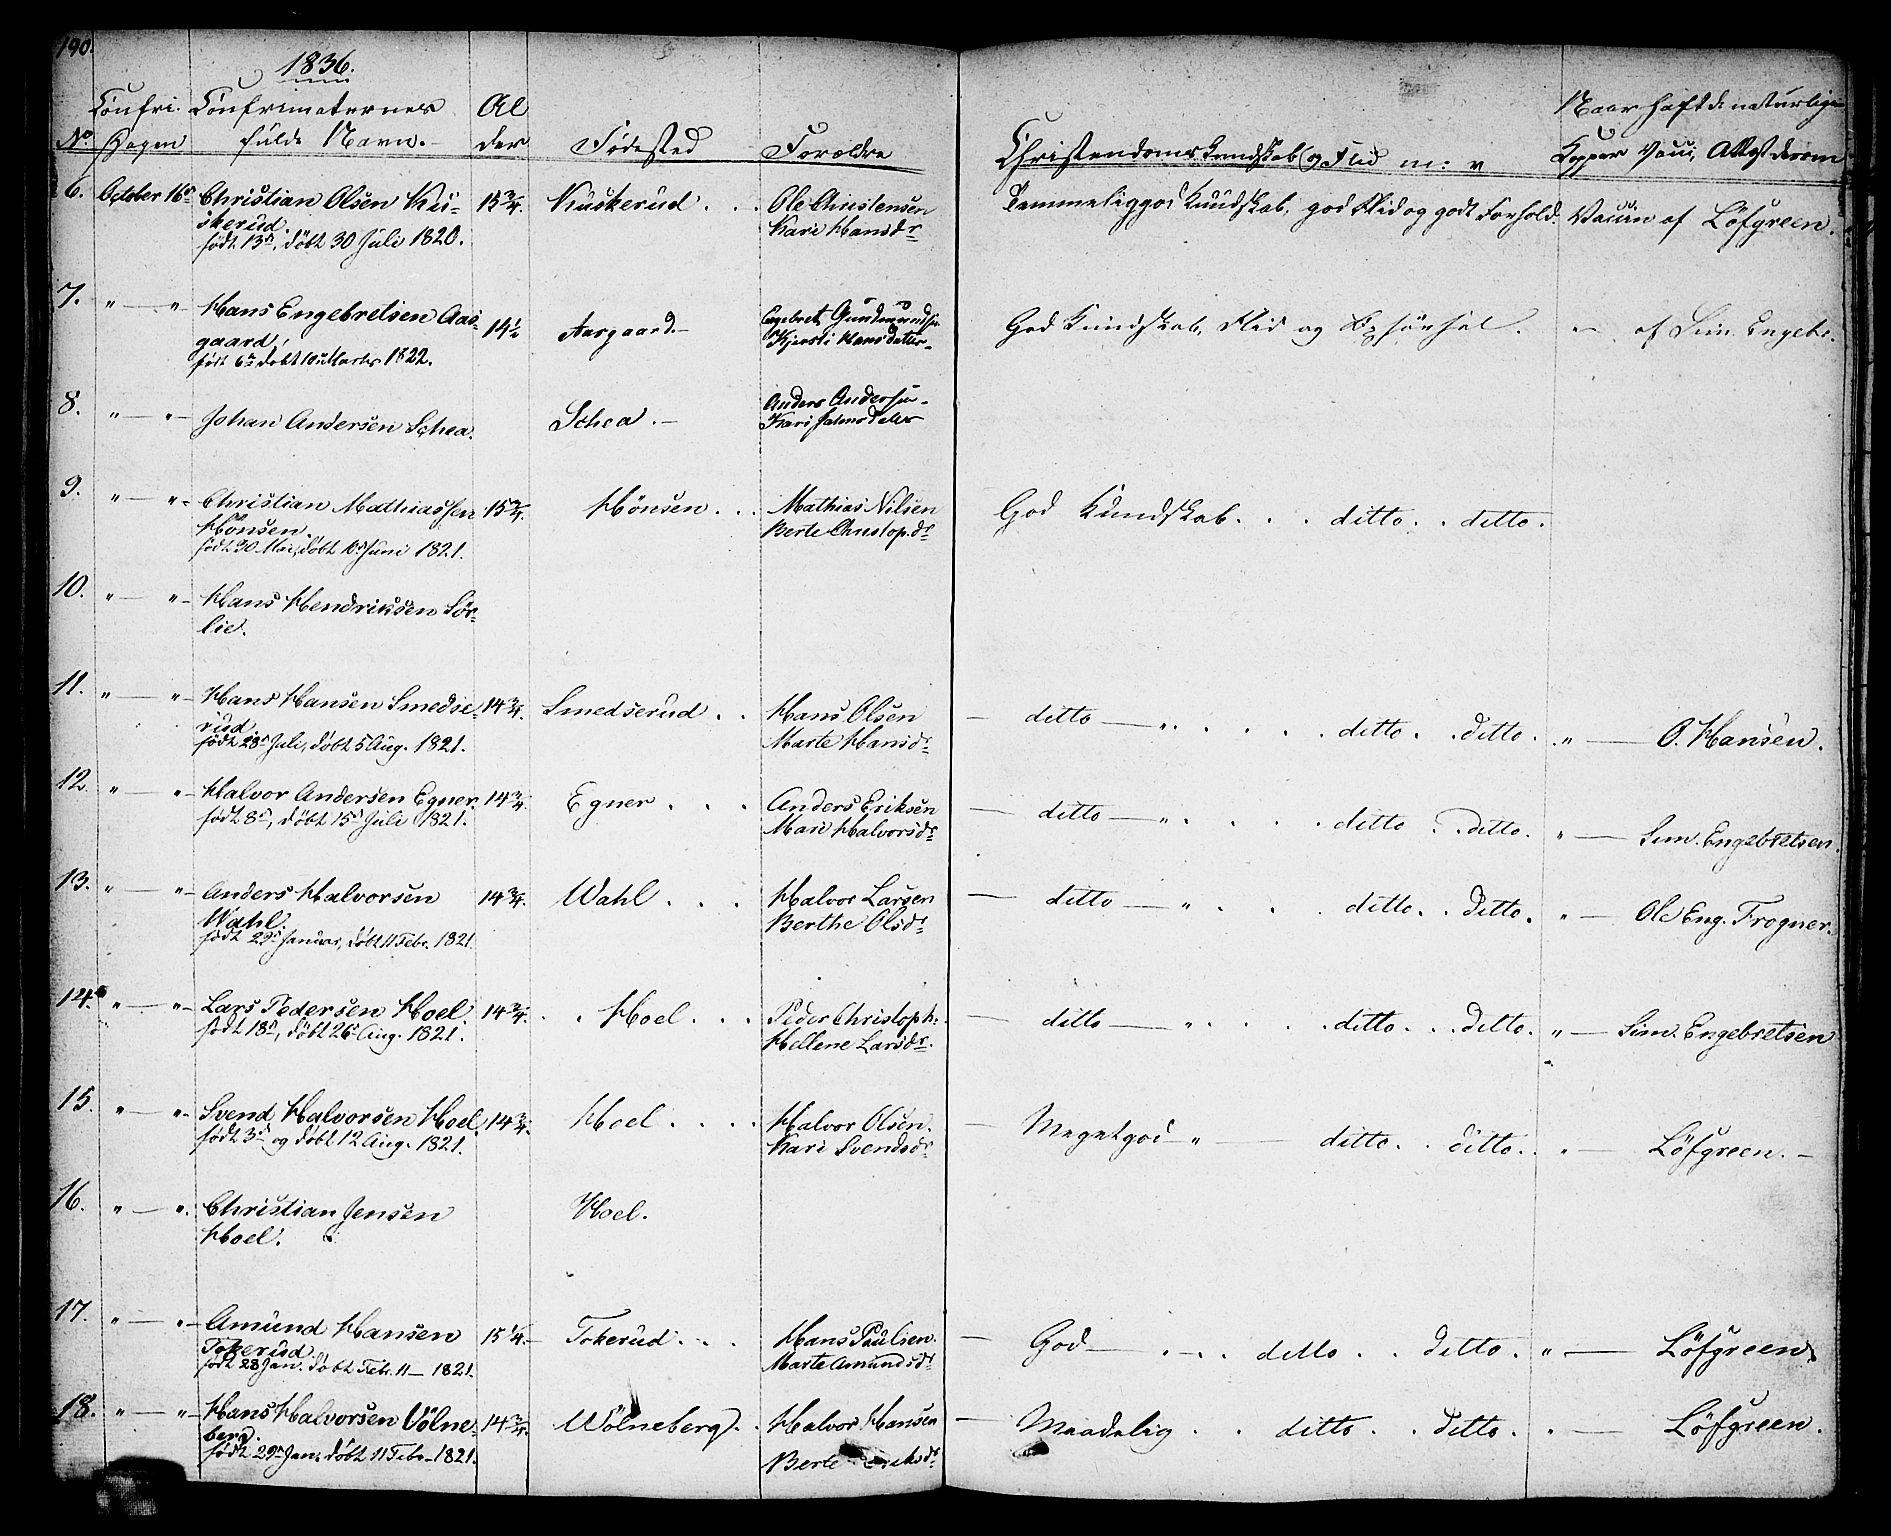 190.
1836.
No Confri. Dagen Confirmaternes fulde Navn. Alder Fødested Forældre Christendoms Kundskab og Flid m: v Naar haft de naturlige Kopper Vacci, Attest derom
6. October 16de Christian Olsen Kuskerud. 15 3/4. Kuskerud . . Ole Christensen Temmelig god Kundskab, god Flid og godt Forhold. Vaccin af Löfgreen.
født 13de, døbt 30 Juli 1820. Kari Hansdr
7. " — " Hans Engebretsen Aasgaard, 14 1/2 Aasgaard — Engebret Gudmundsen God Kundskab, Flid og Opførsel. " af Sim. Engebr.
født 6te døbt 10 Marts 1822. Kjersti Hansdatter
8. " — " Johan Andersen Schea. Schea. — Anders Andersen
Kari
9. " — " Christian Mathiassen Hönsen. 15 3/4. Hönsen . . . Mathias Nilsen God Kundskab. . . ditto. . ditto.
født 30 Mai, døbt Juni 1821. Berte Christop.dr
10. " — " Hans Hendriksen Sörlie.
11. " — " Hans Hansen Smedserud 14 3/4. Smedserud . . Hans Olsen — ditto — " . . . . ditto. . ditto. . " — O. Hansen.
født 28de Juli, døbt 5 Aug. 1821. Marte Hansdr
12. " — " Halvor Andersen Egner. 14 3/4. Egner . . . Anders Eriksen — ditto — " . . . . ditto . . ditto. " — Sim. Engebretsen.
født 8de, døbt 15de Juli 1821. Mari Halvorsdr
13. " — " Anders Halvorsen Wahl. 14 3/4. Wahl . . . Halvor Larsen — ditto — " . . . ditto. . ditto. " — Ole Eng. Frogner.
født 29de Januar, døbt 11 Febr. 1821. Berthe Olsdr
14. " — " Lars Pedersen Hoel. 14 3/4. . . Hoel . . . Peder Christoph: — ditto — " . . . . ditto. . . ditto. " — Sim. Engebretsen
født 18de, døbt 26de Aug. 1821. Hellene Larsdr.
15. " — " Svend Halvorsen Hoel. 14 3/4. Hoel . . . . Halvor Olsen. — Meget god " — ditto. . ditto. . " — Löfgreen. —
født 3de og døbt 12 Aug. 1821. Kari Svendsdr
16. " — " Christian Jensen Hoel. Hoel.
17. " — " Amund Hansen Tokerud. 15 1/4. Tokerud. . . Hans Paulsen. — God — " . . ditto . . ditto. " — Löfgreen.
født 28 Jan. døbt Febr. 11 — 1821. Marte Amundsdr
18. " — " Hans Halvorsen Völneberg. 14 3/4. Wölneberg. . Halvor Hansen — Maadelig . . ditto . . ditto. " — Löfgreen.
født 29de Jan. døbt 11 Febr. 1821. Berte